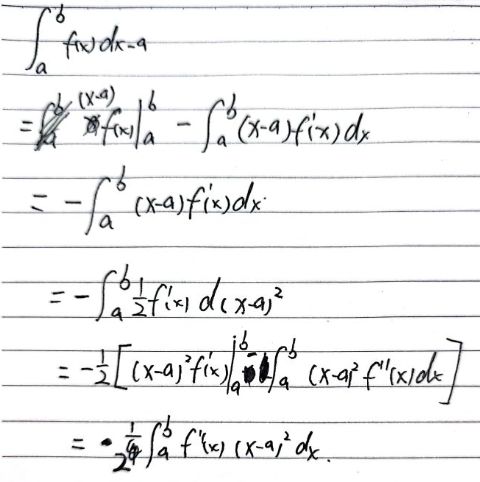 ∫_a^b f(x) dx-a
= (x-a) f(x) |_a^b - ∫_a^b (x-a) f'(x) dx
= - ∫_a^b (x-a) f'(x) dx.
= - ∫_a^b 1/2 f'(x) d(x-a)^2
= -1/2 [ (x-a)^2 f'(x) |_a^b - ∫_a^b (x-a)^2 f''(x) dx ]
= 1/2 ∫_a^b f''(x) (x-a)^2 dx.